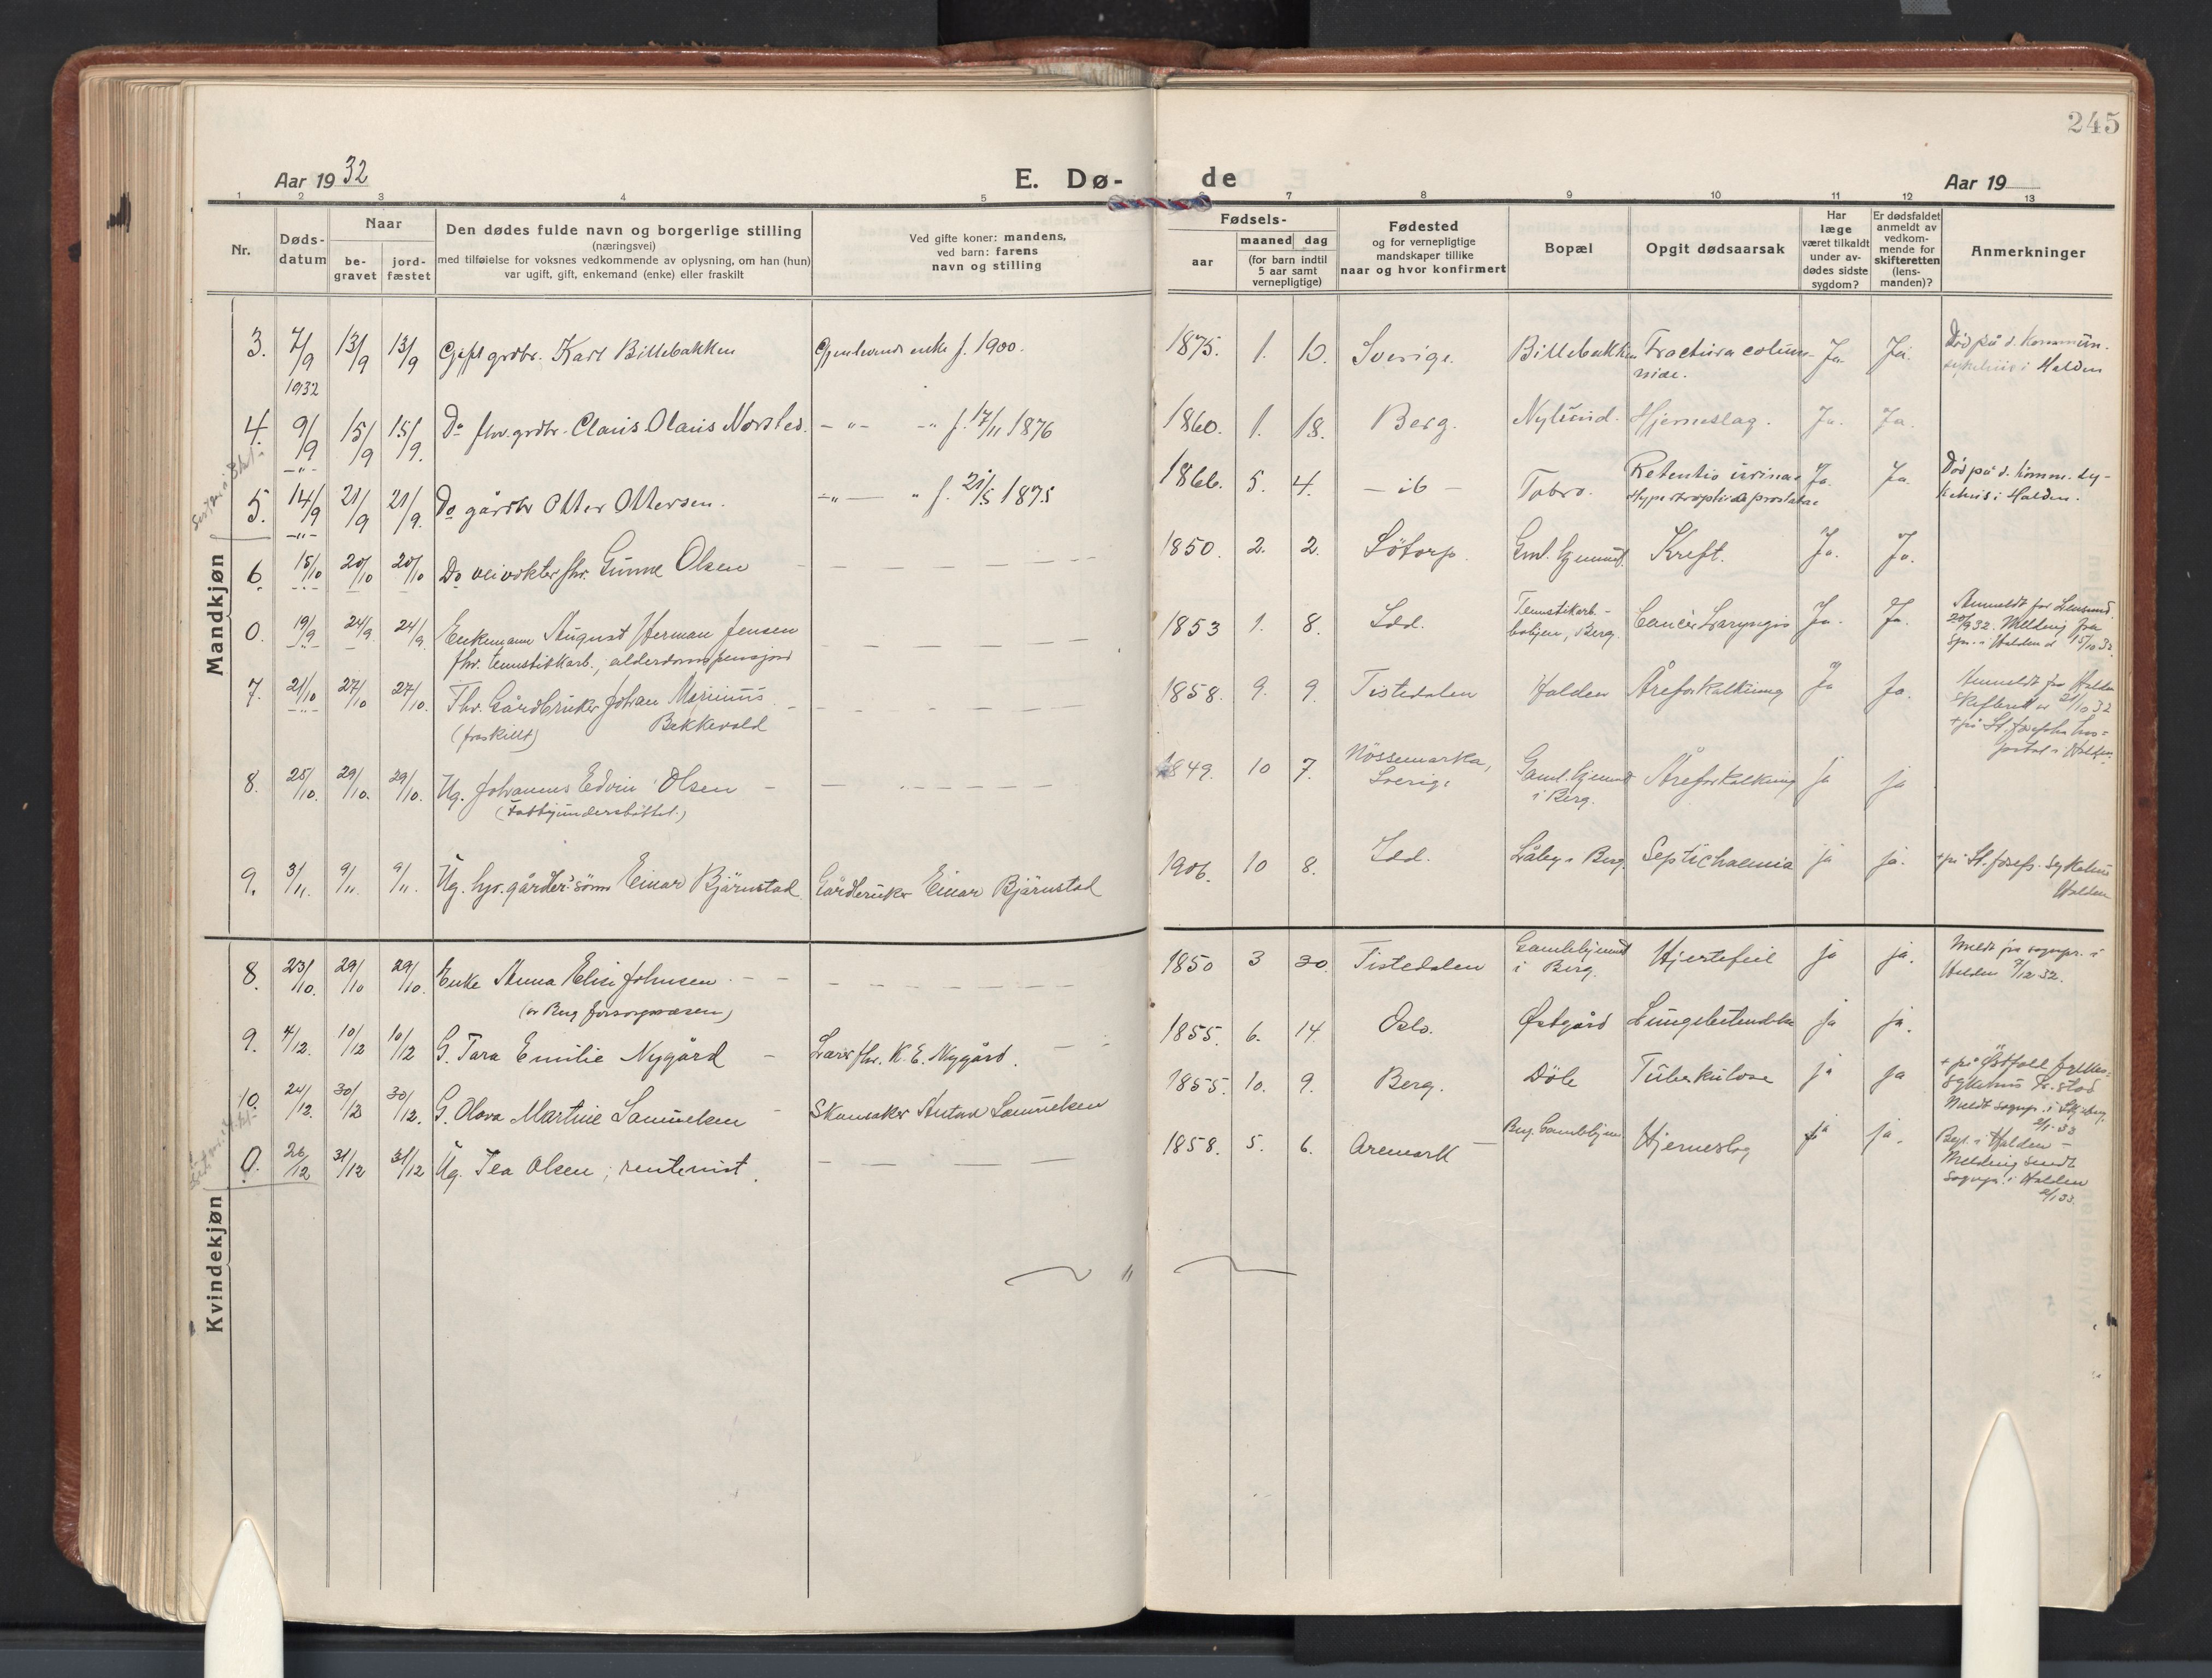 245
Aar 1932
E. Dø-
de
Aar 19
1 2 3 4 5 6 7 8 9 10 11 12 13
Nr.
Døds-
datum
Naar
be-
gravet
jord-
fæstet
Den dødes fulde navn og borgerlige stilling
(næringsvei)
med tilføielse for voksnes vedkommende av oplysning, om han (hun)
var ugift, gift, enkemand (enke) eller fraskilt
Ved gifte koner: mandens,
ved barn: farens
navn og stilling
Fødsels-
aar
maaned dag
(for barn indtil
5 aar samt
vernepligtige)
Fødested
og for vernepligtige
mandskaper tillike
naar og hvor konfirmert
Bopæl
Opgit dødsaarsak
Har
læge
været tilkaldt
under av-
dødes sidste
sygdom?
Er dødsfaldet
anmeldt av
vedkom-
mende for
skifteretten
(lens-
manden)?
Anmerkninger
Mandkjøn
3. 7/9 13/9 13/9 Gift grdbr. Karl Billebakken Gjenlevende enke f. 1900. 1875. 1. 10. Sverige. Billebakken Fractura colum- Ja. Ja. Død på d. kommun.
1932 nae. sykehus i Halden
4. 9/9 15/9 15/9. Do fhv. grdbr. Claus Olaus Norsted. - " - " f. 17/11 1876 1860. 1. 18. Berg. Nylund. Hjerneslag. Ja. Ja.
-"-
5. 14/9 21/9 21/9. Do gårdbr Otter Ottersen. -"- " f. 21/5 1875 1866. 5. 4. - ib - Tobro. Retentio urinae Ja. Ja. Død på d. komm. sy-
-"- Hypertrophia prostatae kehus i Halden.
6. 15/10 20/10 20/10 Do veivokter fhv. Gunne Olsen 1850. 2. 2. Götorp. Gml. Gjemund. Kreft. Ja. Ja.
0. 19/9 24/9. 24/9 Enkemann August Herman Jensen 1853 1. 8. Idd. Fyrstikarb.- Cancer Laryngis Ja. Ja. Anmeldt for Lensmd.
fhv. alderdomspensjon Berg. 20/9 32. Melding fra
spr. i Halden av 15/10 32.
7. 21/10 27/10 27/10. Fhv. Gårdbruker Johan Marinius 1858. 9. 9. Tistedalen Halden Åreforkalkning Ja Ja. Anmeldt fra Halden
(fraskillt) Bekkevold skifterett av 21/10 32
+ på St. Josephs hos-
pital i Halden.
8. 25/10. 29/10. 29/10. Ug. Johannes Edvin Olsen 1849. 10 7. Nössemarka, Gaml. Gjemund Åreforkalkning Ja ja
(Fattigunderstöttet.) Sverige i Berg.
9. 3/11. 9/11. 9/11. Ug. hjv. gårdbr.sönn Einar Bjärnstad Gårdbruker Einar Bjärnstad 1906. 10 8. Idd. Låby i Berg Septichaemia ja ja. + på St. Josefs. Sykehus
Halden
Kvindekjøn
8. 23/10. 29/10 29/10. Enke Anna Elise Johnsen 1850 3 30. Tistedalen Hjertefeil ja ja. Meldt fra sognepr. i
(av Berg forsorgsvæsen) i Berg. Halden 7/12 32.
9. 4/12. 10/12 10/12 G. Tara Emilie Nygård Lærer fhv. K. E. Nygård. 1855. 6. 14. Oslo. Østgård Lungebetendelse ja ja.
10. 24/12. 30/12 30/12. G. Olava Martine Samuelsen Skomaker Anton Samuelsen 1855. 10. 9. Berg. Döle Tuberkulose ja ja + på Östfoll fylkes
sykehus Fr.stad
Meldt sognepr. i
2/1 33
0. 26/12 31/12 31/12 Ug. Tea Olsen; rentenist. 1858. 5. 6. Aremark Hjerneslag ja ja. Begr. i Halden -
Melding sendt
sognepr. i Halden
2/1 33.